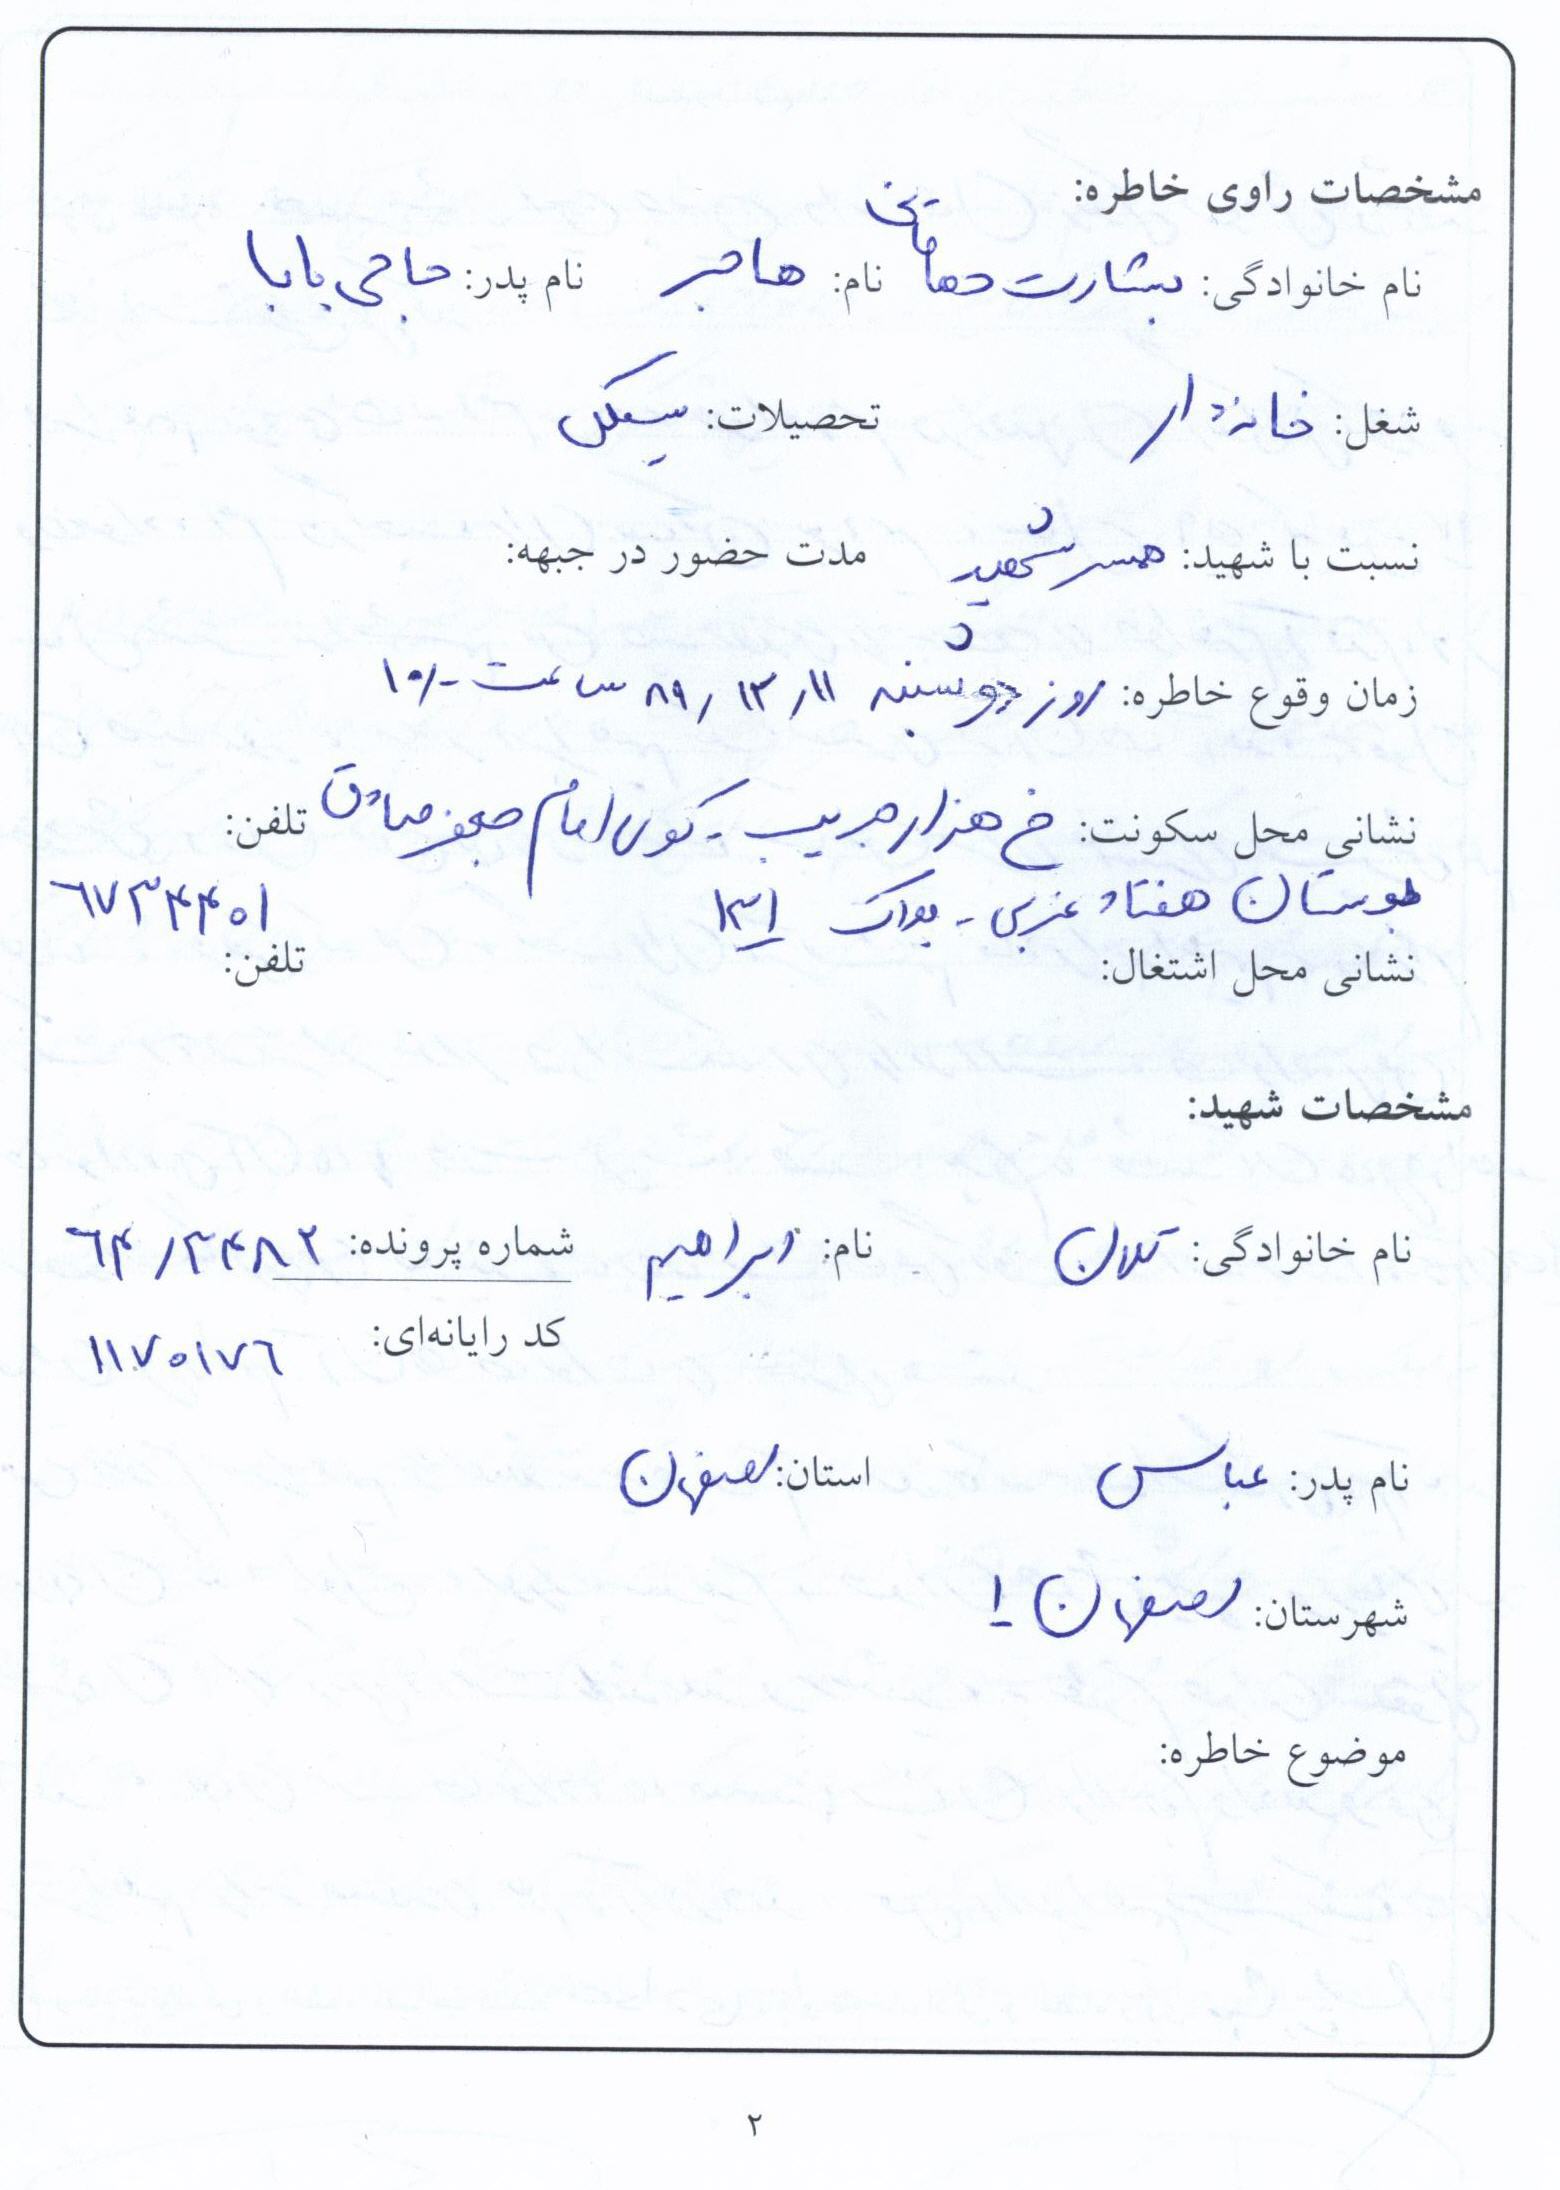 مشخصات راوی خاطره:
نام خانوادگی: بشارت نام: هاجر نام پدر: حاجی بابا
شغل: خانه‌دار تحصیلات: سیکل
نسبت با شهید: همسر شهید مدت حضور در جبهه:
زمان وقوع خاطره: روز دوشنبه ۸۹/۱۲/۱۱ ساعت ۱۰
نشانی محل سکونت: خ هزار جریب - کوی امام جعفر صادق تلفن:
بوستان هفتاد غربی - پلاک ۱۳۱ ۶۷۳۴۴۰۱
نشانی محل اشتغال: تلفن:
مشخصات شهید:
نام خانوادگی: تلان نام: ابراهیم شماره پرونده: ۶۴/۳۴۸۲
کد رایانه‌ای: ۱۱۷۰۱۷۶
نام پدر: عباس استان: اصفهان
شهرستان: اصفهان ۱
موضوع خاطره:
۲